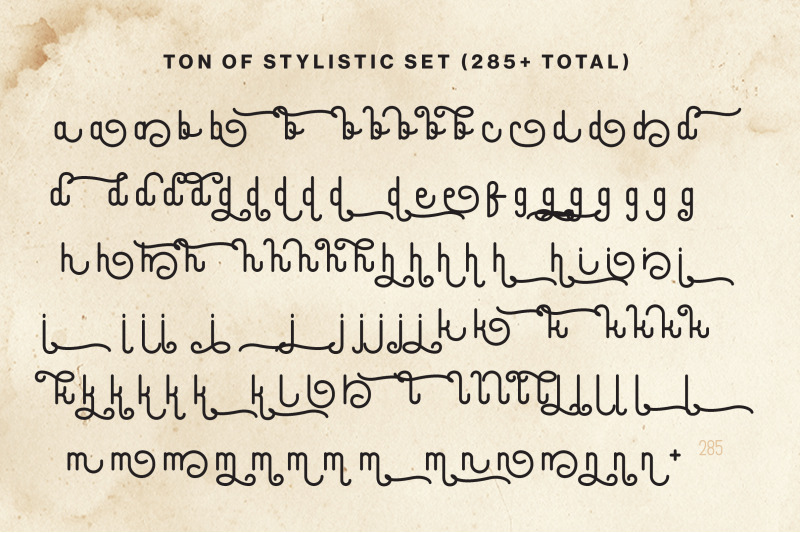 TON OF STYLISTIC SET (285+ TOTAL)
a a a b b b b b b b b c c d d d d
d d d d d d d d d d d e e f g g g g g g g
h h h h h h h h h h h h h h h i i i i
i i i i j j j j j j j k k k k k k k
k k k k k k k l l l l l l l l l l l l l l
m m m m m m m m m n n n n n n + 285